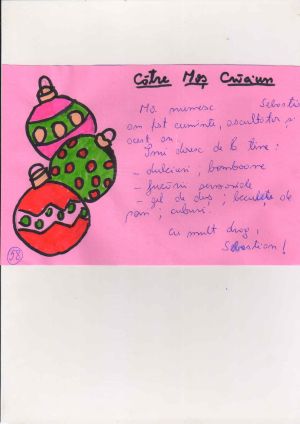 Către Moş Crăciun
Mă numesc Sebasti
am fost cuminte, ascultător şi
acest an.
Îmi doresc de la tine:
- dulciuri ; bomboane
- jucării personale
- gel de duş ; beculeţe de
pom ; culori.
Cu mult drag,
Sebastian!
58